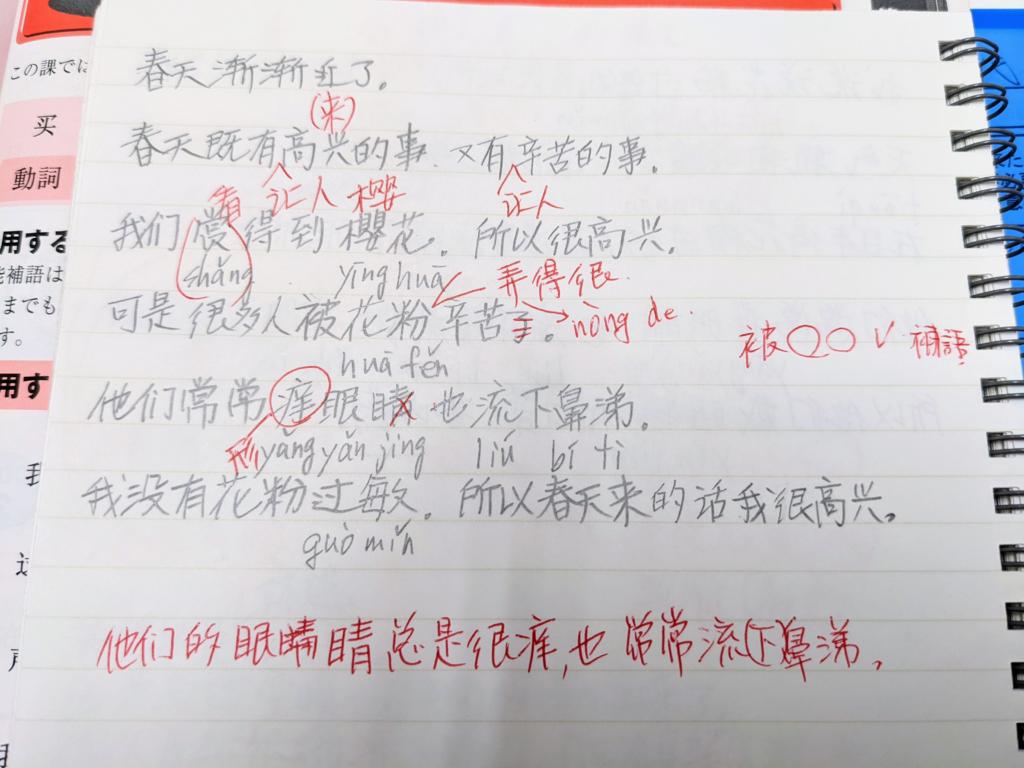 この課では
买
動詞
用する
能補語は
までも
す。
用す
春天渐渐近了。
(来)
春天既有高兴的事、又有辛苦的事。
让人 樱 让人
看
我们赏得到樱花。所以很高兴。
shǎng yīng huā
弄得很.
可是很多人被花粉辛苦了。
nòng de.
被〇〇 V 補語
huā fěn
他们常常痒眼睛.也流下鼻涕。
形
yǎng yǎn jing liú bí tì
我没有花粉过敏。所以春天来的话我很高兴。
guò mǐn
他们的眼睛总是很痒,也常常流(下)鼻涕。